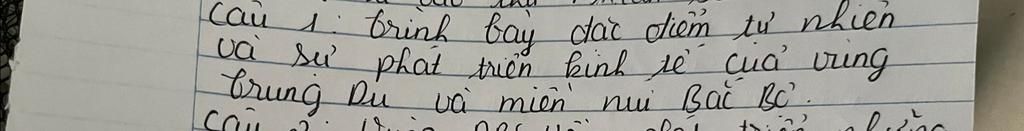 Câu 1: trình bày đặc điểm tự nhiên
và sự phát triển kinh tế của vùng
trung Du và miền núi Bắc Bộ.
câu